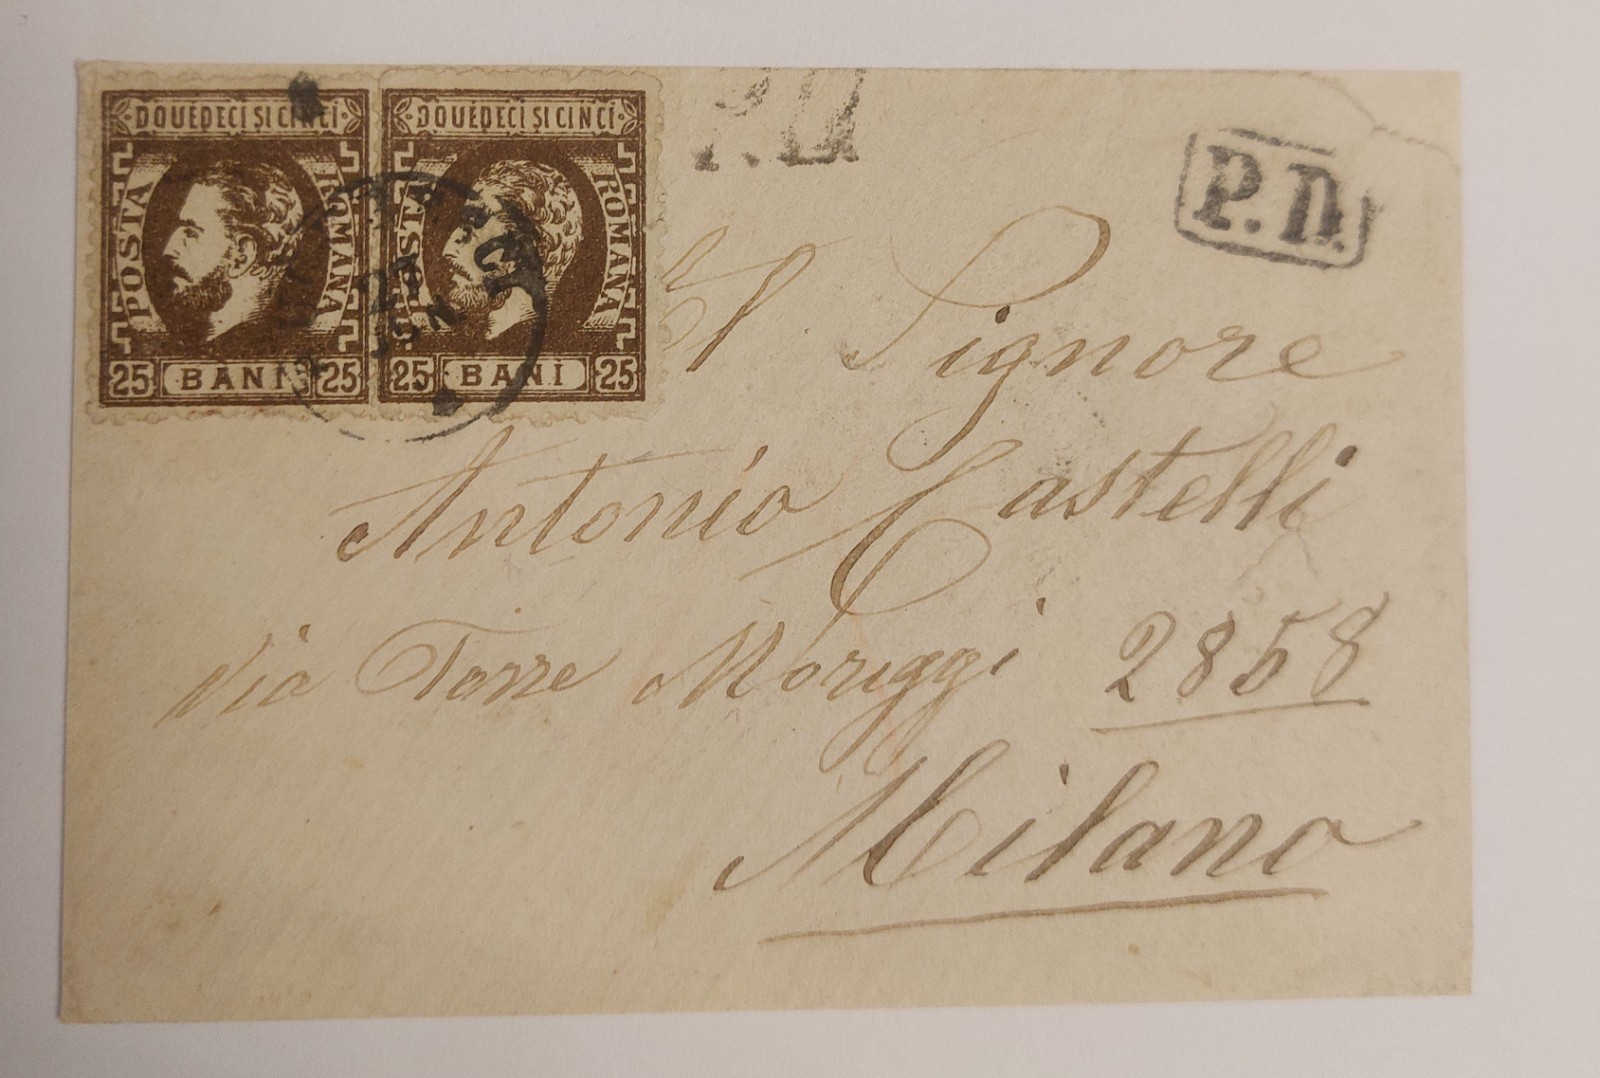 DOUEDECI ȘI CINCI
POSTA ROMANA
25 BANI 25
DOUEDECI ȘI CINCI
POSTA ROMANA
25 BANI 25
27
IUN
P.D.
P.D.
Al Signore
Antonio Castelli
Via Torre Moriggi 2858
Milano